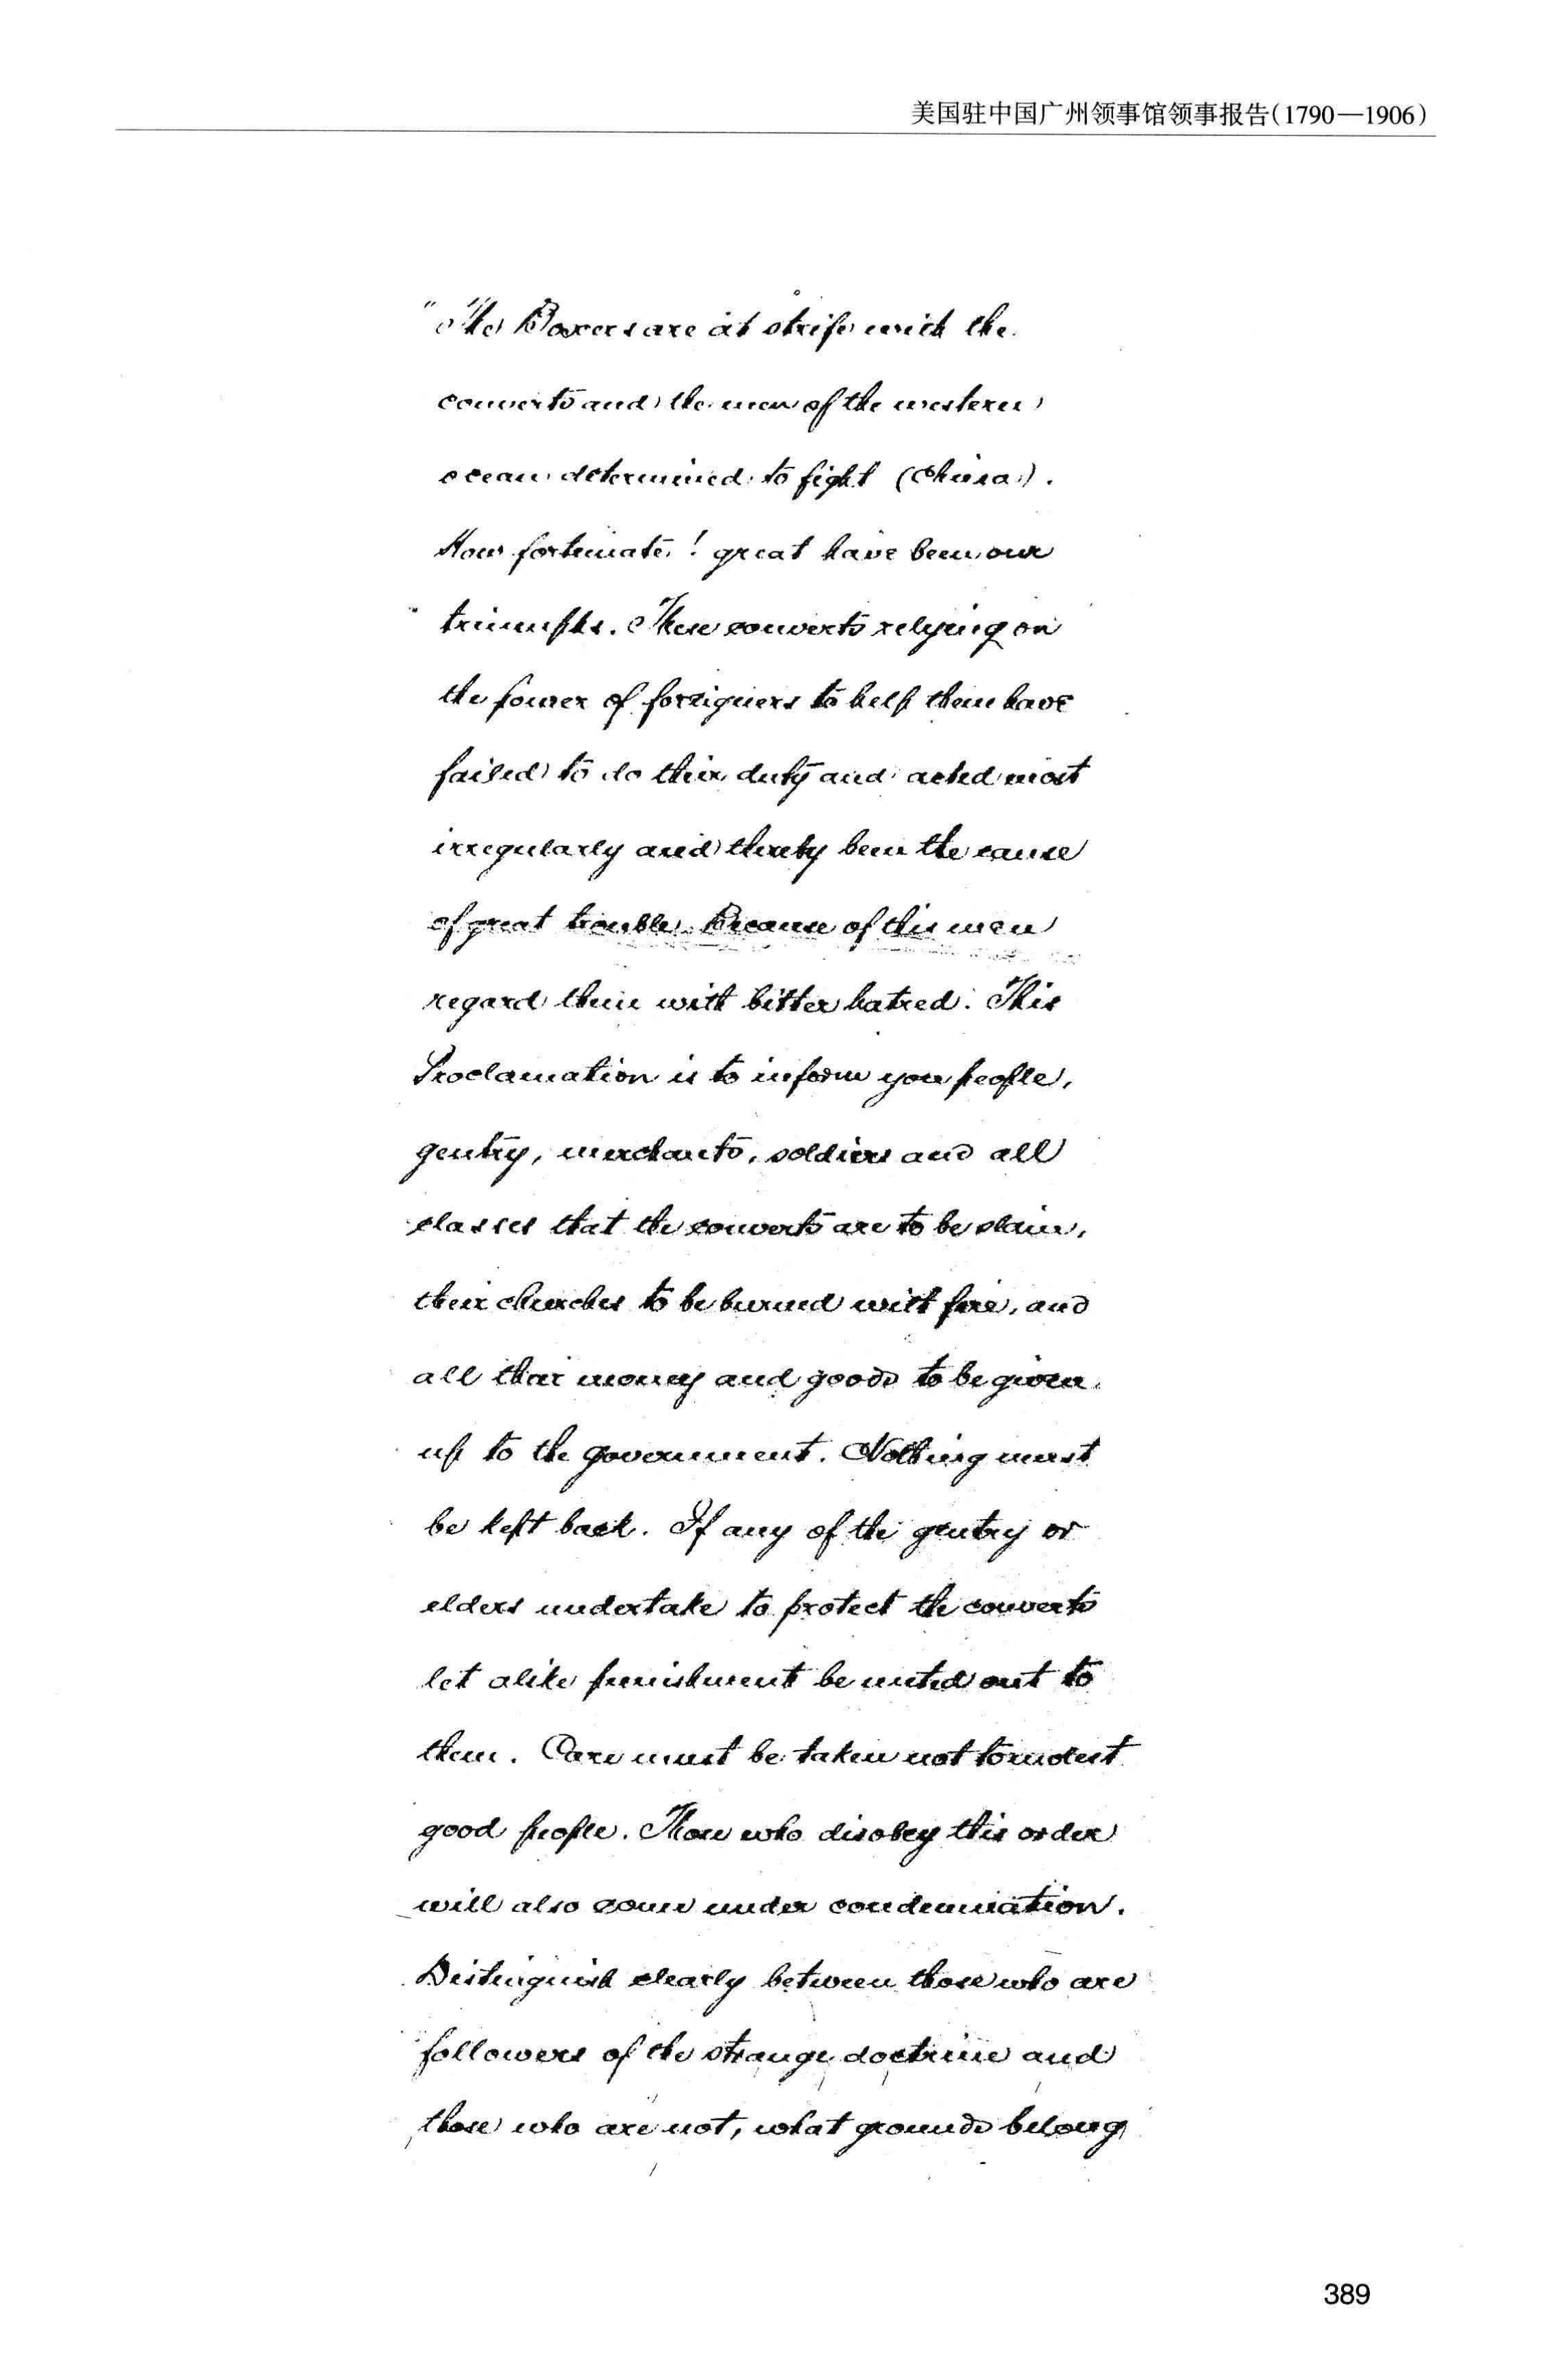 美国驻中国广州领事馆领事报告(1790—1906)
"The Boxers are at strife with the
converts and the men of the western
ocean determined to fight (China).
How fortunate! great have been our
triumphs. These converts relying on
the power of foreigners to help them have
failed to do their duty and acted most
irregularly and thereby been the cause
of great trouble. Because of this men
regard them with bitter hatred. This
Proclamation is to inform you people,
gentry, merchants, soldiers and all
classes that the converts are to be slain,
their churches to be burned with fire, and
all their money and goods to be given
up to the government. Nothing must
be kept back. If any of the gentry or
elders undertake to protect the converts
let alike punishment be meted out to
them. Care must be taken not to molest
good people. Those who disobey this order
will also come under condemnation.
Distinguish clearly between those who are
followers of the strange doctrine and
those who are not, what grounds belong
389